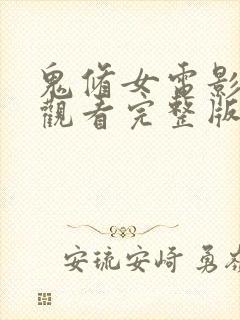 鬼脩女電影
觀看完整版
安琉安崎 勇